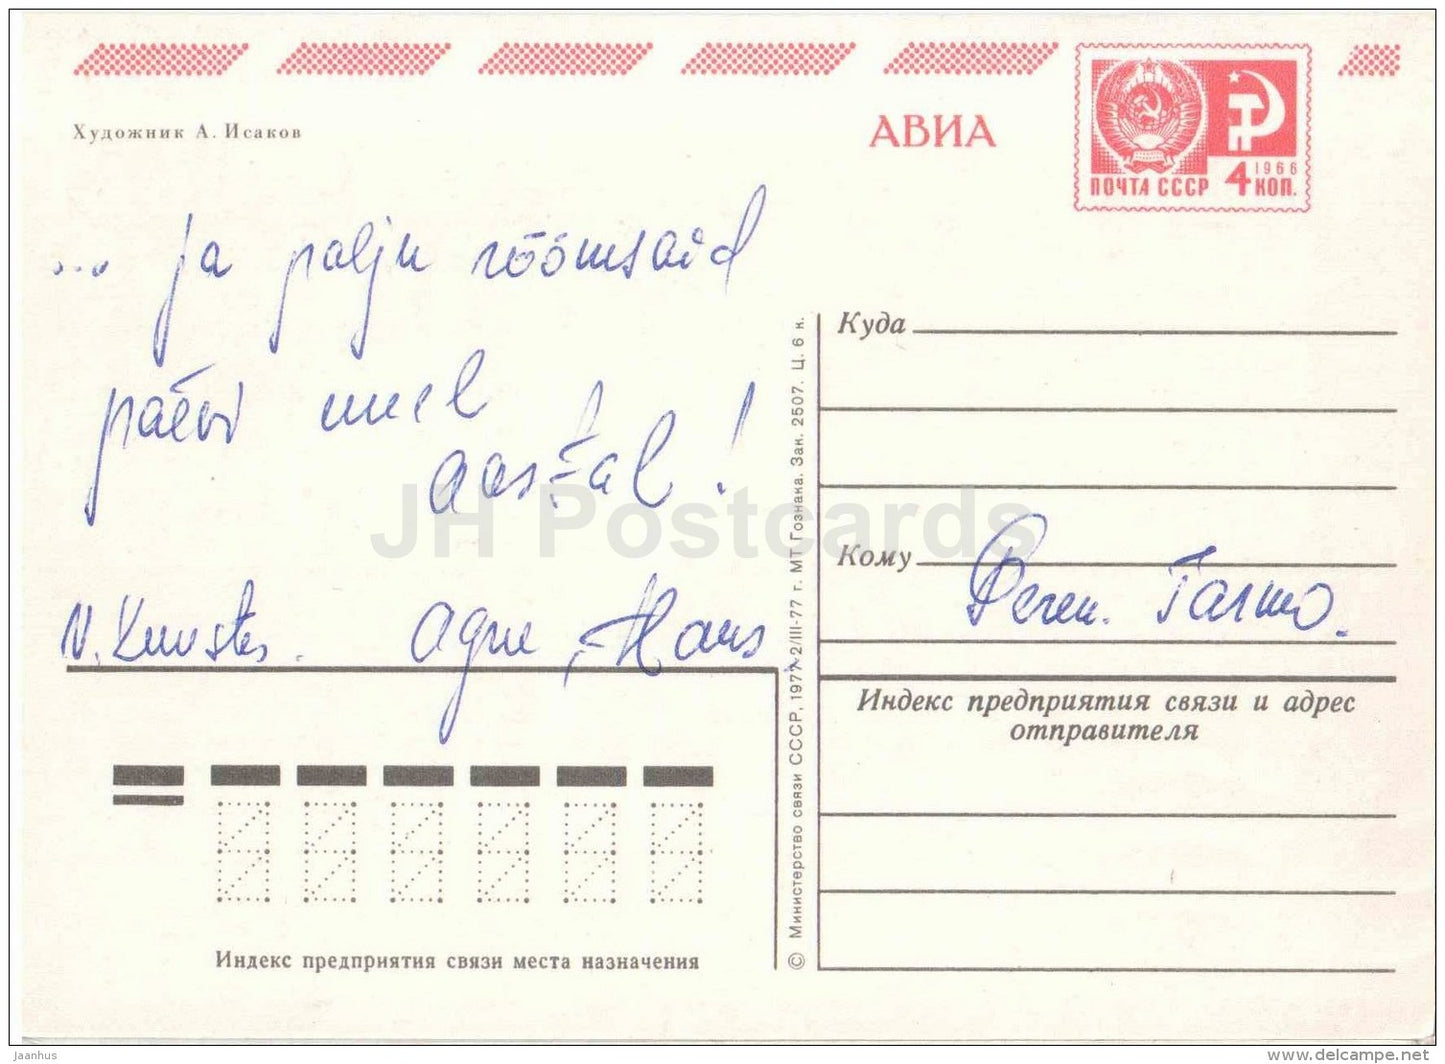 Художник А. Исаков
АВИА
1966
ПОЧТА СССР 4 КОП.
... ja palju rõõmsaid
päevi uuel
aastal!
V. Kuustes. Agne, Hans
Куда
Кому
Тармо.
Индекс предприятия связи и адрес
отправителя
Индекс предприятия связи места назначения
© Министерство связи СССР, 1977. 2/III-77 г. МТ Гознака. Зак. 2507. Ц. 6 к.
JH Postcards
jaanhus
www.delcampe.net